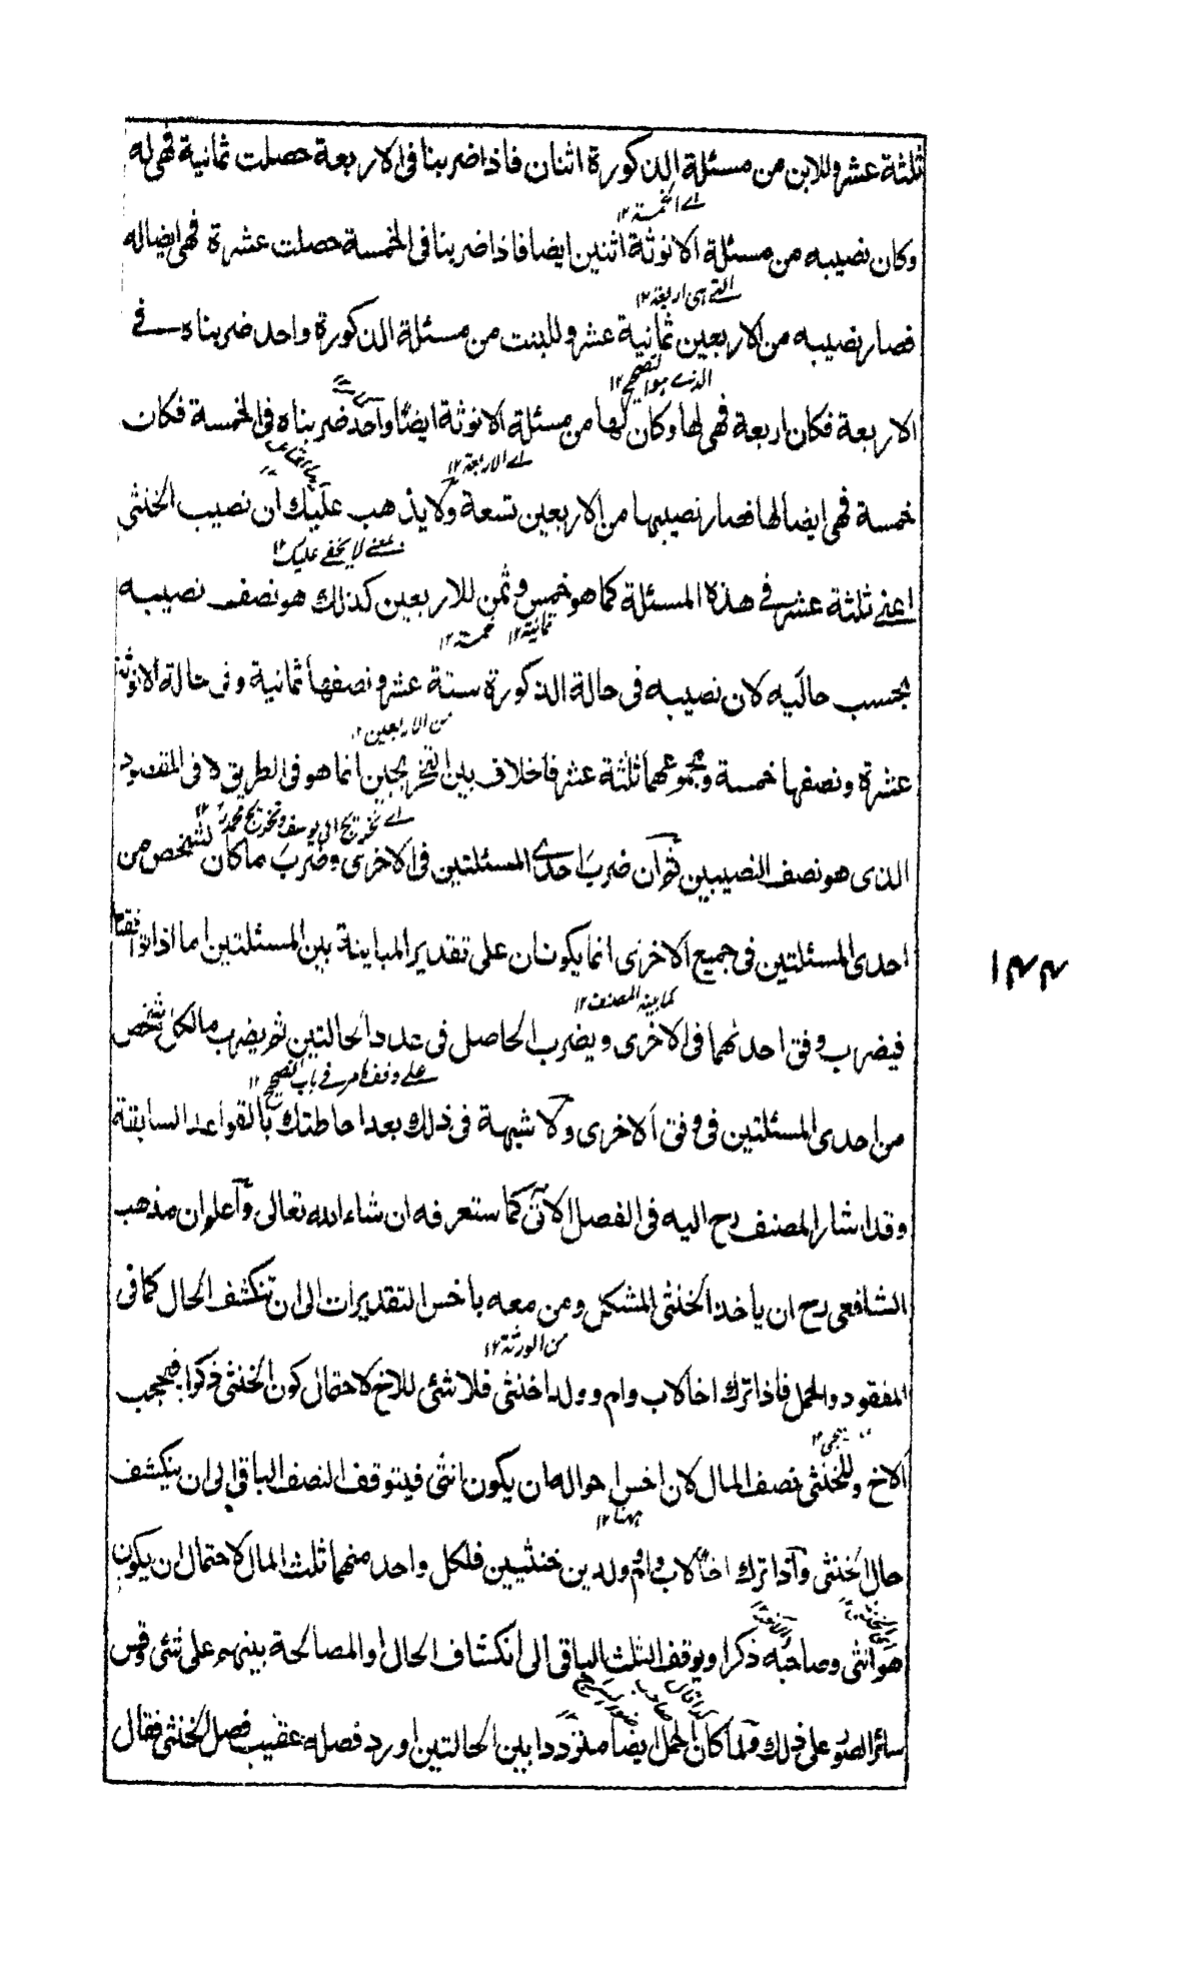 ثلثة عشر وللابن من مسئلة الذكورة اثنان فاذا ضربنا فى الاربعة حصلت ثمانية فهى له
اے الخمسة ١٢
وكان نصيبه من مسئلة الانوثة اثنين ايضا فاذا ضربنا فى الخمسة حصلت عشرة فهى ايضا له
التے هى اربعة ١٢
فصار نصيبه من الاربعين ثمانية عشر وللبنت من مسئلة الذكورة واحد ضربناه فے
الذے هو التصحيح ١٢
الاربعة فكان اربعة فهى لها وكان لها من مسئلة الانوثة ايضا واحد ضربناه فى الخمسة فكان
اے الاربعة ١٢
خمسة فهى ايضا لها فصار نصيبها من الاربعين تسعة ولا يذهب عليك ان نصيب الخنثى
يعنے لا يخفے عليك ١٢
اعنے ثلثة عشر فے هذه المسئلة كما هو خمس وثمن للاربعين كذلك هو نصف نصيبه
ثمانية ١٢ خمسة ١٢
بحسب حاليه لان نصيبه فى حالة الذكورة ستة عشر ونصفها ثمانية وفى حالة الانوثة
من الاربعين ١٢
عشرة ونصفها خمسة ومجموعهما ثلثة عشر فاخلاف بين التخريجين انما هو فى الطريق لا فى المقصود
اے تخريج ابى يوسف وتخريج محمد رح ١٢
الذى هو نصف النصيبين ثم ان ضرب احدے المسئلتين فى الاخرى وضرب ما كان لشخص من
احدى المسئلتين فى جميع الاخرى انما يكونان على تقدير المباينة بين المسئلتين اما اذا توافقتا
كما بينه المصنف ١٢
فيضرب وفق احدهما فى الاخرى ويضرب الحاصل فى عدد الحالتين ثم يضرب ما لكل شخص
علے وفق ما مر فے باب التصحيح ١٢
من احدى المسئلتين فى وفق الاخرى ولا شبهة فى ذلك بعد احاطتك بالقواعد السابقة
١٤٤
وقد اشار المصنف رح اليه فى الفصل الآتى كما ستعرفه ان شاء الله تعالى واعلم ان مذهب
الشافعى رح ان ياخذ الخنثى المشكل ومن معه باخس التقديرات الى ان تنكشف الحال كما فى
من الورثة ١٢
المفقود والحمل فاذا ترك اخا لاب وام وولدا خنثى فلا شئ للاخ لاحتمال كون الخنثى ذكرا فيحجب
الاخ وللخنثى نصف المال لان اخس احواله ان يكون انثى فيتوقف النصف الباقى الى ان ينكشف
ههنا ١٢
حال الخنثى واذا ترك اخا لاب وام وولدين خنثيين فلكل واحد منهما ثلث المال لاحتمال ان يكون
هو انثى وصاحبه ذكرا ويوقف الثلث الباقى الى انكشاف الحال او المصالحة بينهم على شئ وقس
كذا قال صاحب ضوء السراج
سائر الصور على ذلك ولما كان الحمل ايضا مترددا بين الحالتين اورد فصله عقيب فصل الخنثى فقال